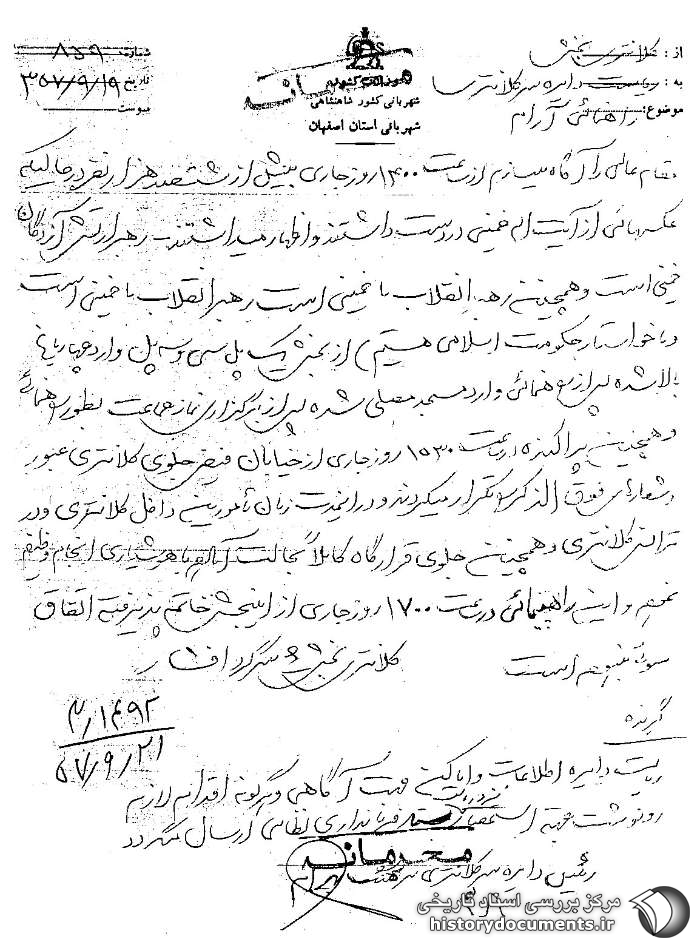 از : کلانتری بخش
به : ریاست دایره سرکلانتری
موضوع: راهنمائی آرام
وزارت کشور
شهربانی کشور شاهنشاهی
شهربانی استان اصفهان
محرمانه
شماره ۸۵۹
تاریخ ۳۵۷/۹/۱۹
پیوست
مقام عالی را آگاه میسازم از ساعت ۱۴۰۰ روز جاری بیش از ششصد هزار نفر در حالیکه
عکسهائی از آیت اله خمینی در دست داشتند و اظهار میداشتند رهبر ارتش آزادگان
خمینی است و همچنین رهبر انقلاب ما خمینی است رهبر انقلاب ما خمینی است
و ما خواستار حکومت اسلامی هستیم) از بخش یک پل سی و سه پل وارد چهارباغ
بالا شده پس از راهنمائی وارد مسجد مصلی شده پس از برگزاری نماز جماعت بطور راهنمائی
و همچنین پراکنده در ساعت ۱۵۳۰ روز جاری از خیابان فیض جلوی کلانتری عبور
و شعارهای فوق الذکر را تکرار میکردند و در اینمدت زمان مأمورین داخل کلانتری و در
تراس کلانتری و همچنین جلوی قرارگاه کاملاً بحالت آماده با هوشیاری انجام وظیفه
نمودم و این راهپیمائی در ساعت ۱۷۰۰ روز جاری از این بخش خاتمه پذیرفته اتفاق
سوئی نبوده است
کلانتری بخش ۶ سرگرد
۲/۱۴۹۲
۵۷/۹/۲۱
گیرنده
ریاست دایره اطلاعات و اماکن جهت آگاهی و هرگونه اقدام لازم
رونوشت جهت استحضار فرمانداری نظامی ارسال میگردد
محرمانه
رئیس دایره سرکلانتری سرهنگ
مرکز بررسی اسناد تاریخی
historydocuments.ir